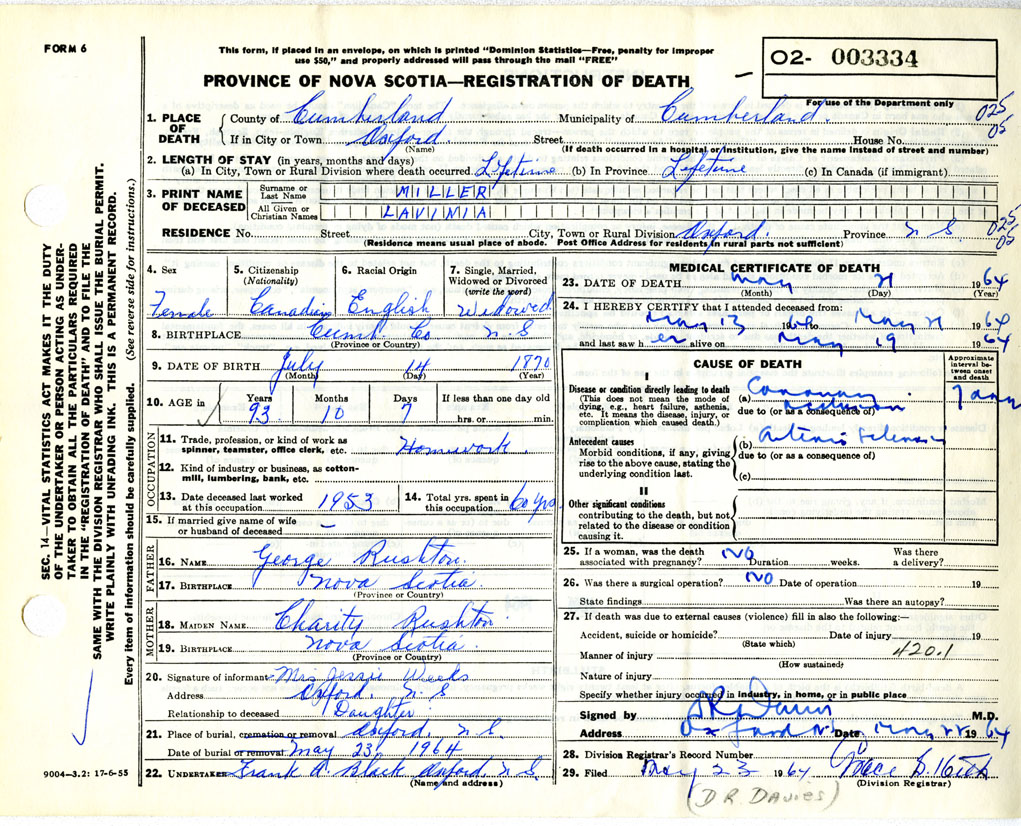 FORM 6
This form, if placed in an envelope, on which is printed "Dominion Statistics—Free, penalty for improper
use $50," and properly addressed will pass through the mail "FREE"
PROVINCE OF NOVA SCOTIA—REGISTRATION OF DEATH
O2- 003334
For use of the Department only
1. PLACE OF DEATH
County of Cumberland Municipality of Cumberland. 025
If in City or Town Oxford. Street House No. 05
(Name) (If death occurred in a hospital or institution, give the name instead of street and number)
2. LENGTH OF STAY (in years, months and days)
(a) In City, Town or Rural Division where death occurred Lifetime (b) In Province Lifetime (c) In Canada (if immigrant)
3. PRINT NAME OF DECEASED
Surname or Last Name MILLER
All Given or Christian Names LAVIMIA
025
RESIDENCE No. Street City, Town or Rural Division Oxford. Province N S. 05
(Residence means usual place of abode. Post Office Address for residents in rural parts not sufficient)
4. Sex
Female
5. Citizenship
(Nationality)
Canadian
6. Racial Origin
English
7. Single, Married,
Widowed or Divorced
(write the word)
Widowed
8. BIRTHPLACE Cumb. Co N. S
(Province or Country)
9. DATE OF BIRTH July 14 1870
(Month) (Day) (Year)
10. AGE in
Years Months Days If less than one day old
93 10 7 hrs. or min.
OCCUPATION
11. Trade, profession, or kind of work as
spinner, teamster, office clerk, etc. Homework.
12. Kind of industry or business, as cotton-
mill, lumbering, bank, etc.
13. Date deceased last worked
at this occupation 1953
14. Total yrs. spent in
this occupation 60 yrs
15. If married give name of wife
or husband of deceased —
FATHER
16. NAME George Rushton.
17. BIRTHPLACE Nova Scotia.
(Province or Country)
MOTHER
18. MAIDEN NAME Charity Rushton
19. BIRTHPLACE Nova Scotia.
(Province or Country)
20. Signature of informant Mrs Jessie Weeks
Address Oxford. N. S
Relationship to deceased Daughter
21. Place of burial, cremation or removal Oxford. N. S
Date of burial or removal May 23, 1964
22. UNDERTAKER Frank A. Black Oxford, N. S.
(Name and address)
MEDICAL CERTIFICATE OF DEATH
23. DATE OF DEATH May 21 1964
(Month) (Day) (Year)
24. I HEREBY CERTIFY that I attended deceased from:
May 13 1964 to May 21 1964
and last saw her alive on May 19 1964
CAUSE OF DEATH
Approximate
interval be-
tween onset
and death
I
Disease or condition directly leading to death
(This does not mean the mode of
dying, e.g., heart failure, asthenia,
etc. It means the disease, injury, or
complication which caused death.)
(a) Coronary
due to (or as a consequence of)
Antecedent causes
Morbid conditions, if any, giving
rise to the above cause, stating the
underlying condition last.
(b)
due to (or as a consequence of)
(c)
II
Other significant conditions
contributing to the death, but not
related to the disease or condition
causing it.
25. If a woman, was the death
associated with pregnancy? NO Duration weeks. Was there
a delivery?
26. Was there a surgical operation? NO Date of operation 19
State findings Was there an autopsy?
27. If death was due to external causes (violence) fill in also the following:—
Accident, suicide or homicide? Date of injury 19
(State which)
Manner of injury 420.1
(How sustained)
Nature of injury
Specify whether injury occurred in industry, in home, or in public place
Signed by M.D.
Address Oxford N Date May 22 1964
28. Division Registrar's Record Number
29. Filed May 23 1964
(Division Registrar)
(DR DAVIES)
SEC. 14—VITAL STATISTICS ACT MAKES IT THE DUTY
OF THE UNDERTAKER OR PERSON ACTING AS UNDER-
TAKER TO OBTAIN ALL THE PARTICULARS REQUIRED
IN THE "REGISTRATION OF DEATH" AND TO FILE THE
SAME WITH THE DIVISION REGISTRAR WHO SHALL ISSUE THE BURIAL PERMIT.
WRITE PLAINLY WITH UNFADING INK. THIS IS A PERMANENT RECORD.
Every item of information should be carefully supplied. (See reverse side for instructions.)
9004—3.2: 17-6-55